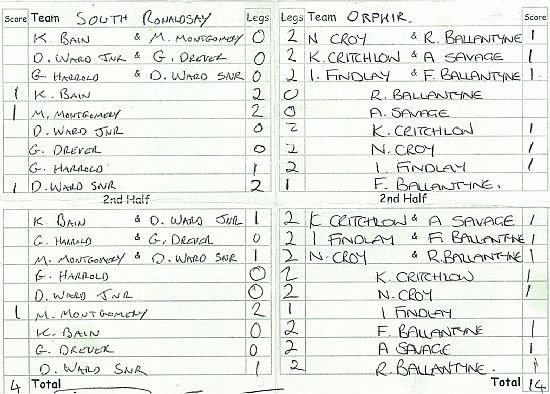 Score Team SOUTH RONALDSAY Legs Legs Team ORPHIR. Score
K. BAIN & M. MONTGOMERY 0 2 N CROY & R. BALLANTYNE 1
D. WARD JNR & G. DREVER 0 2 K. CRITCHLON & A SAVAGE 1
G. HARROLD & D. WARD SNR 0 2 I. FINDLAY & F. BALLANTYNE 1
1 K. BAIN 2 0 R. BALLANTYNE
1 M. MONTGOMERY 2 0 A. SAVAGE
D. WARD JNR 0 2 K. CRITCHLON 1
G. DREVER 0 2 N. CROY 1
G. HARROLD 1 2 I. FINDLAY 1
1 D. WARD SNR 2 1 F. BALLANTYNE.
2nd Half 2nd Half
K. BAIN & D. WARD JNR 1 2 K CRITCHLOW & A SAVAGE 1
G. HAROLD & G. DREVER 0 2 I FINDLAY & F. BALLANTYNE 1
M. MONTGOMERY & D. WARD SNR 1 2 N. CROY & R. BALLANTYNE 1
G. HARROLD 0 2 K. CRITCHLOW 1
D. WARD JNR 0 2 N. CROY 1
1 M. MONTGOMERY 2 1 I FINDLAY
K. BAIN 0 2 F. BALLANTYNE 1
G. DREVER 0 2 A SAVAGE 1
D. WARD SNR 1 2 R. BALLANTYNE. 1
4 Total Total 14